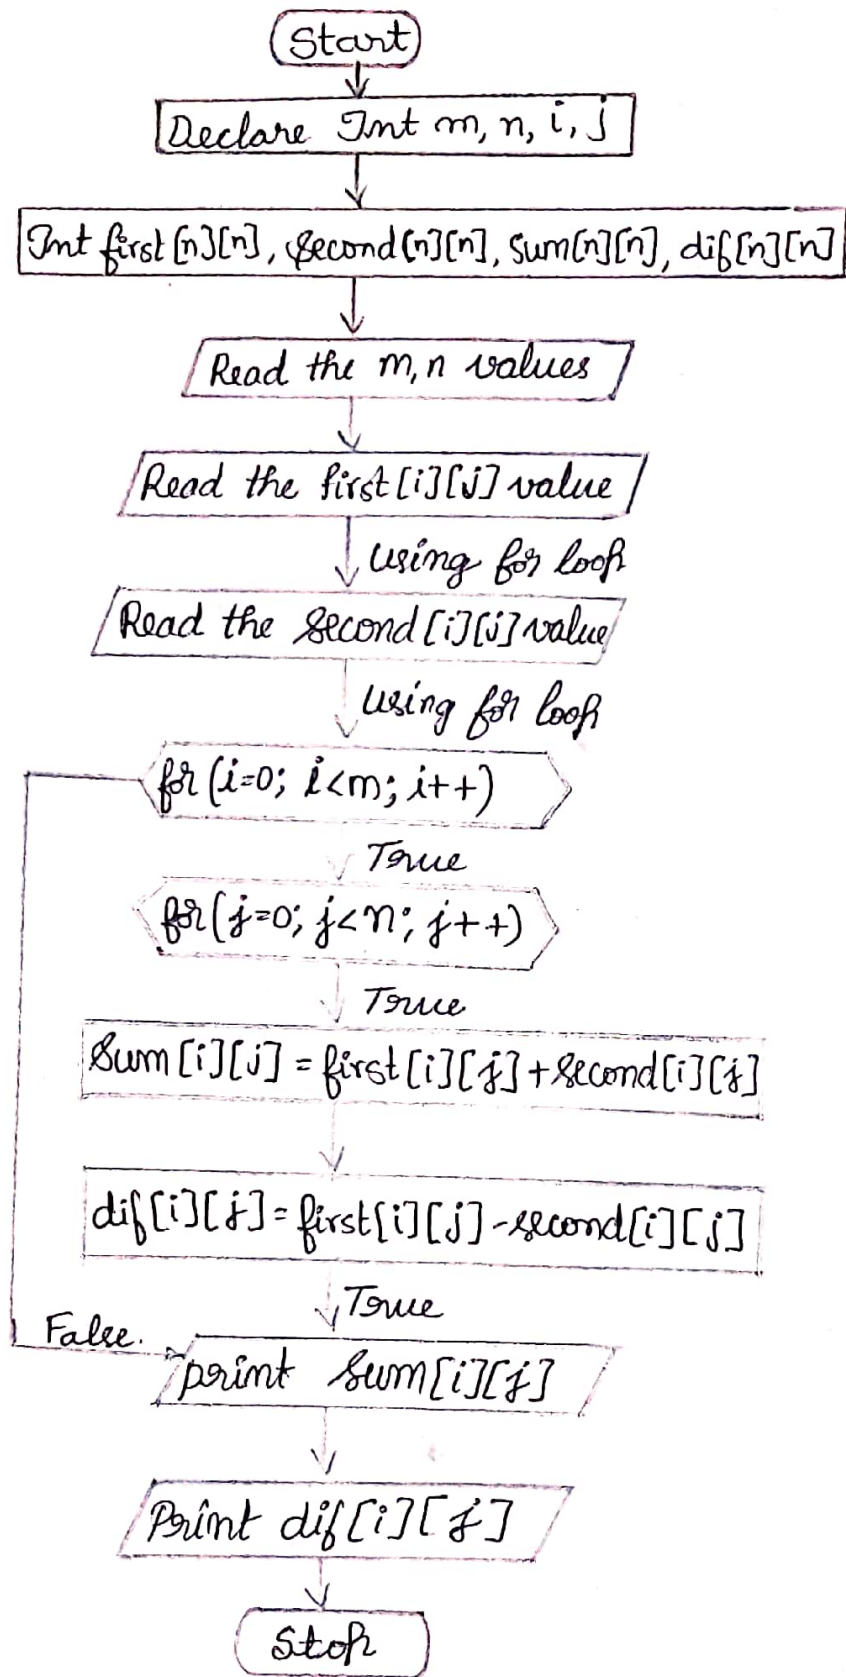 Start
Declare Int m, n, i, j
Int first[n][n], second[n][n], sum[n][n], dif[n][n]
Read the m,n values
Read the first[i][j] value
using for loop
Read the second[i][j] value
using for loop
for(i=0; i<m; i++)
True
for(j=0; j<n; j++)
True
Sum[i][j] = first[i][j]+second[i][j]
dif[i][j]=first[i][j]-second[i][j]
True
False.
print sum[i][j]
Print dif[i][j]
Stop